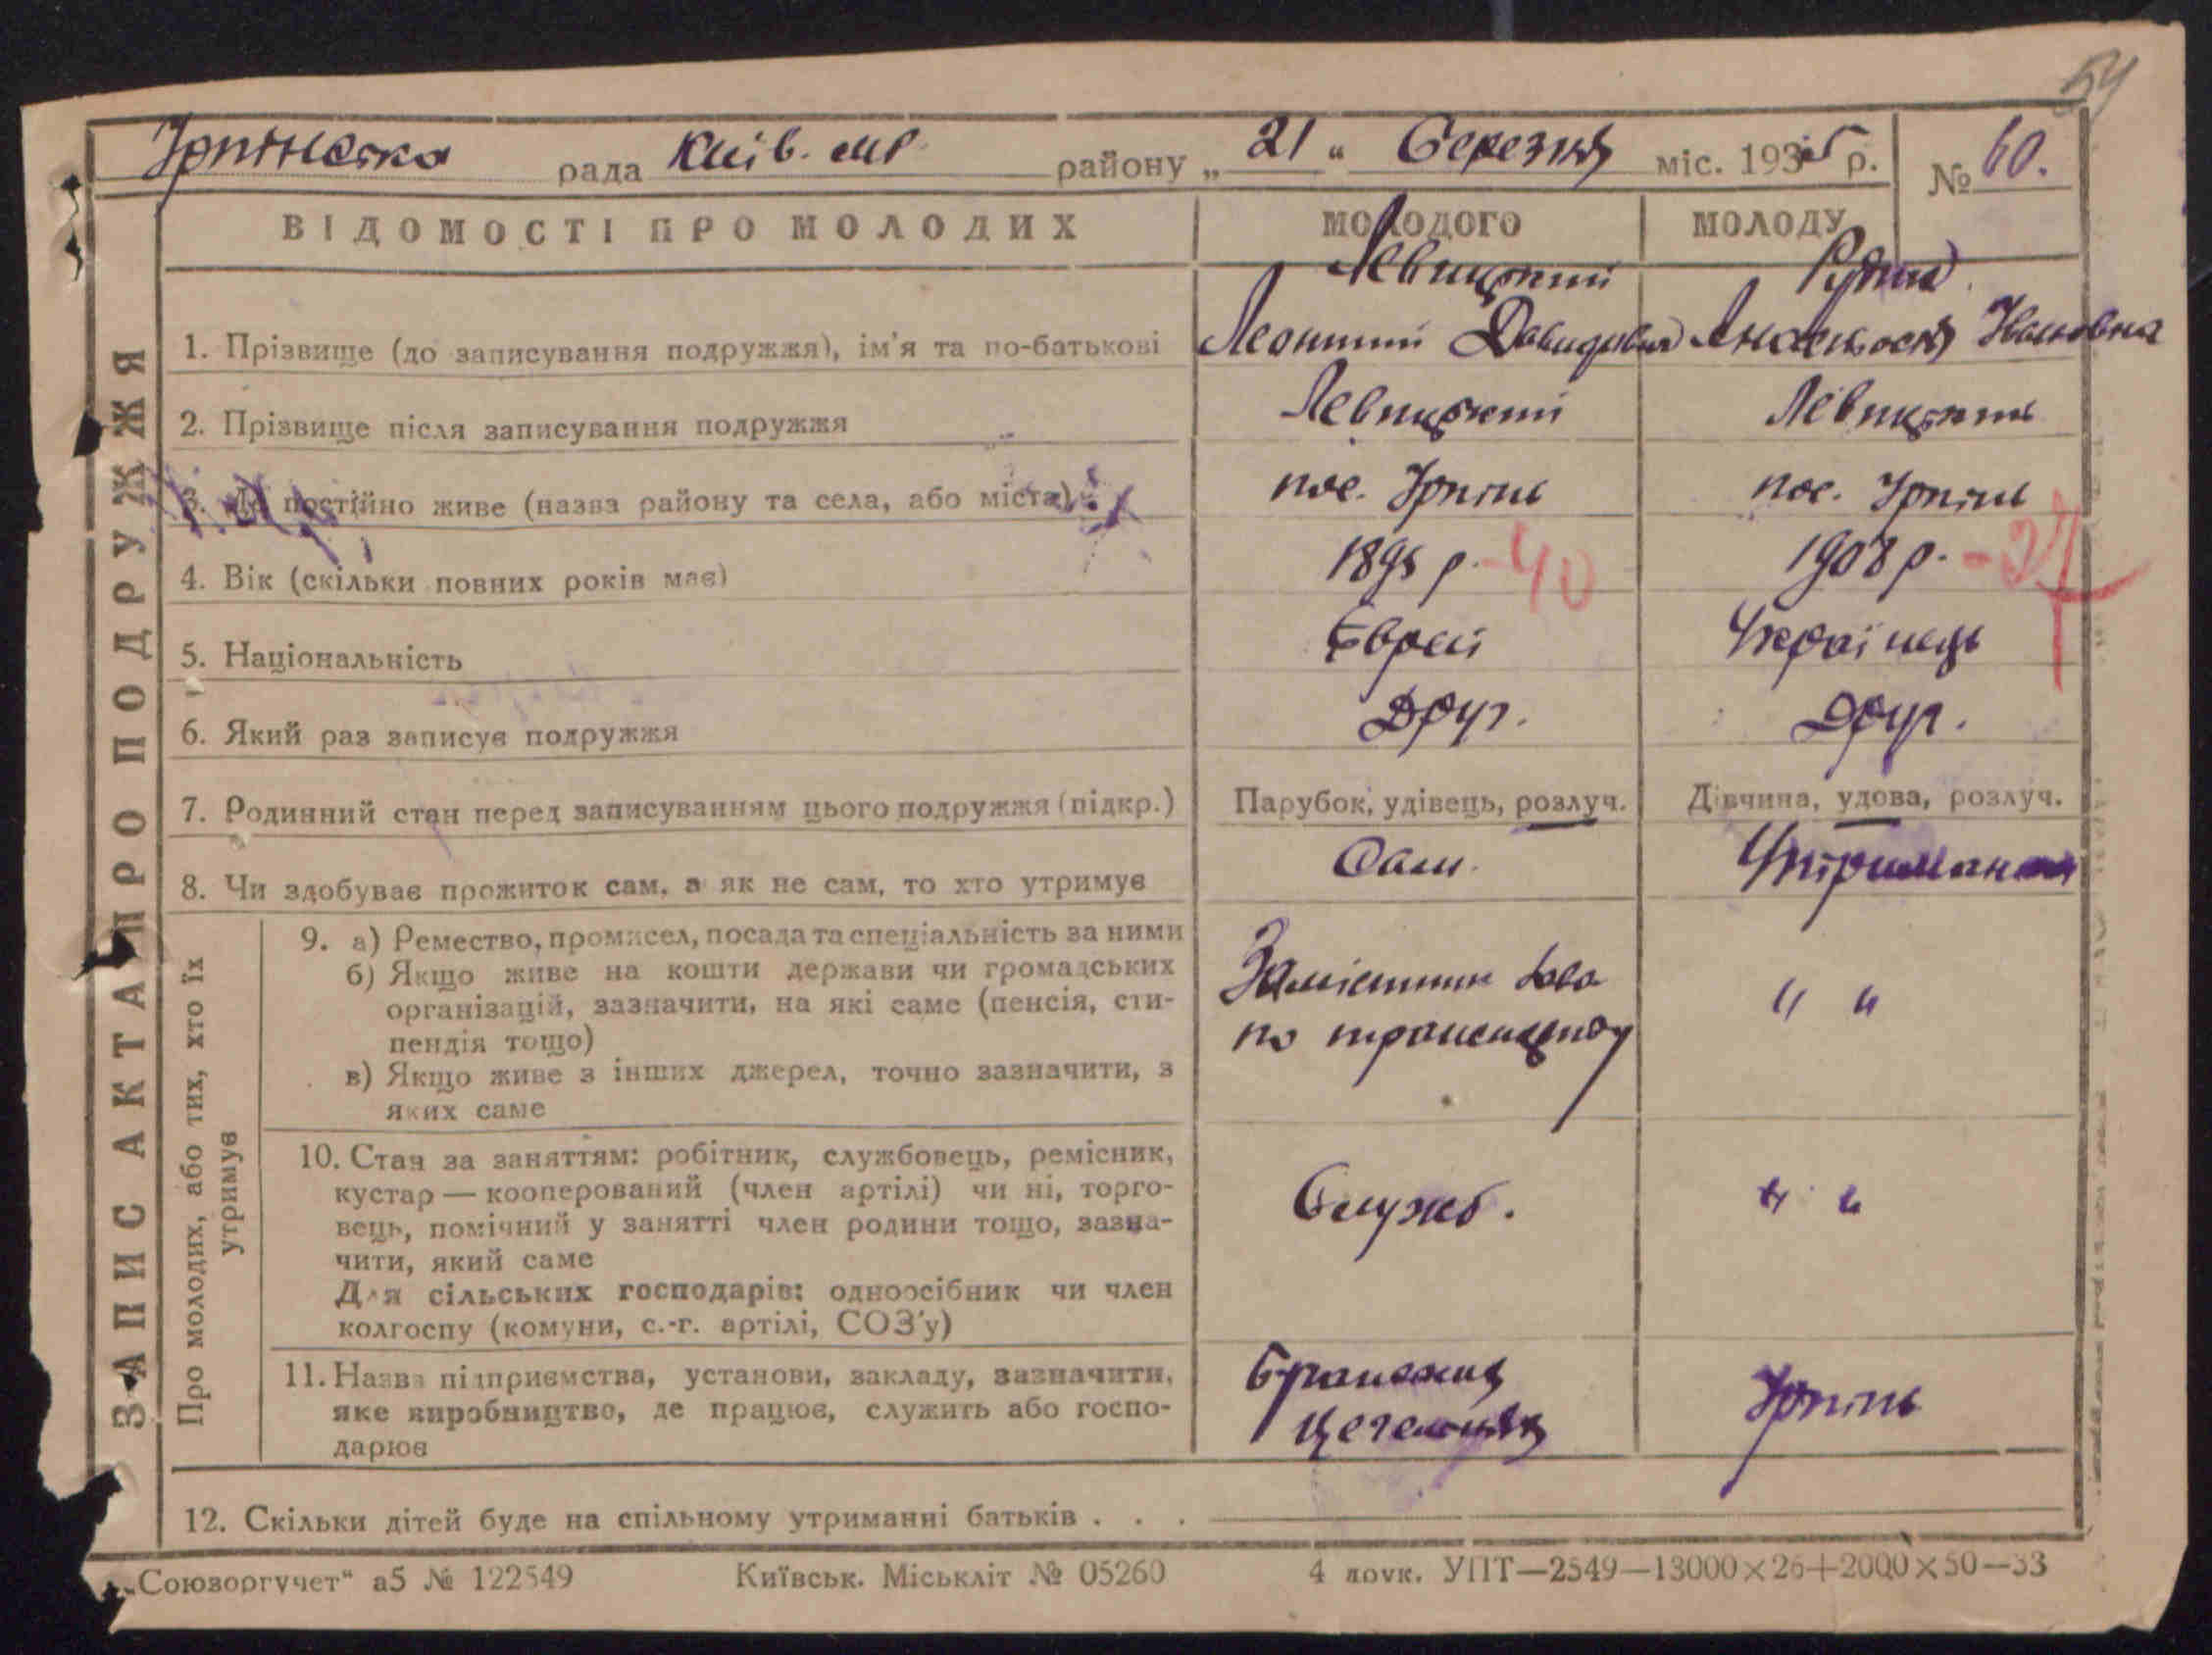 54
Ірпінська рада Київ. мр. району „ 21 “ березня міс. 1935 р. № 60.
ВІДОМОСТІ ПРО МОЛОДИХ МОЛОДОГО МОЛОДУ
Левицький
1. Прізвище (до записування подружжя), ім'я та по-батькові Леонтий Давидович Анастасія Ивановна
2. Прізвище після записування подружжя Левицький Левицкий
3. Де постійно живе (назва району та села, або міста) пос. Ірпінь пос. Ірпінь
4. Вік (скільки повних років має) 1895 р. -40 1908 р. -27
5. Національність Єврей Українець
6. Який раз записує подружжя Друг. Друг.
7. Родинний стан перед записуванням цього подружжя (підкр.) Парубок, удівець, розлуч. Дівчина, удова, розлуч.
8. Чи здобуває прожиток сам, а як не сам, то хто утримує Сам. Утриман
9. а) Ремество, промисел, посада та спеціальність за ними
б) Якщо живе на кошти держави чи громадських
організацій, зазначити, на які саме (пенсія, сти-
пендія тощо)
в) Якщо живе з інших джерел, точно зазначити, з
яких саме
Замісник
по транспорту
" "
10. Стан за заняттям: робітник, службовець, ремісник,
кустар — кооперований (член артілі) чи ні, торго-
вець, помічний у занятті член родини тощо, зазна-
чити, який саме
Для сільських господарів: одноосібник чи член
колгоспу (комуни, с.-г. артілі, СОЗ'у)
Служб.
" "
11. Назва підприємства, установи, закладу, зазначити,
яке виробництво, де працює, служить або госпо-
дарює
цегельня
Ірпінь
12. Скільки дітей буде на спільному утриманні батьків . . .
ЗАПИС АКТА ПРО ПОДРУЖЖЯ
Про молодих, або тих, хто їх
утримує
„Союзоргучет“ а5 № 122549 Київськ. Міськліт № 05260 4 друк. УПТ—2549—13000×26+2000×50—33